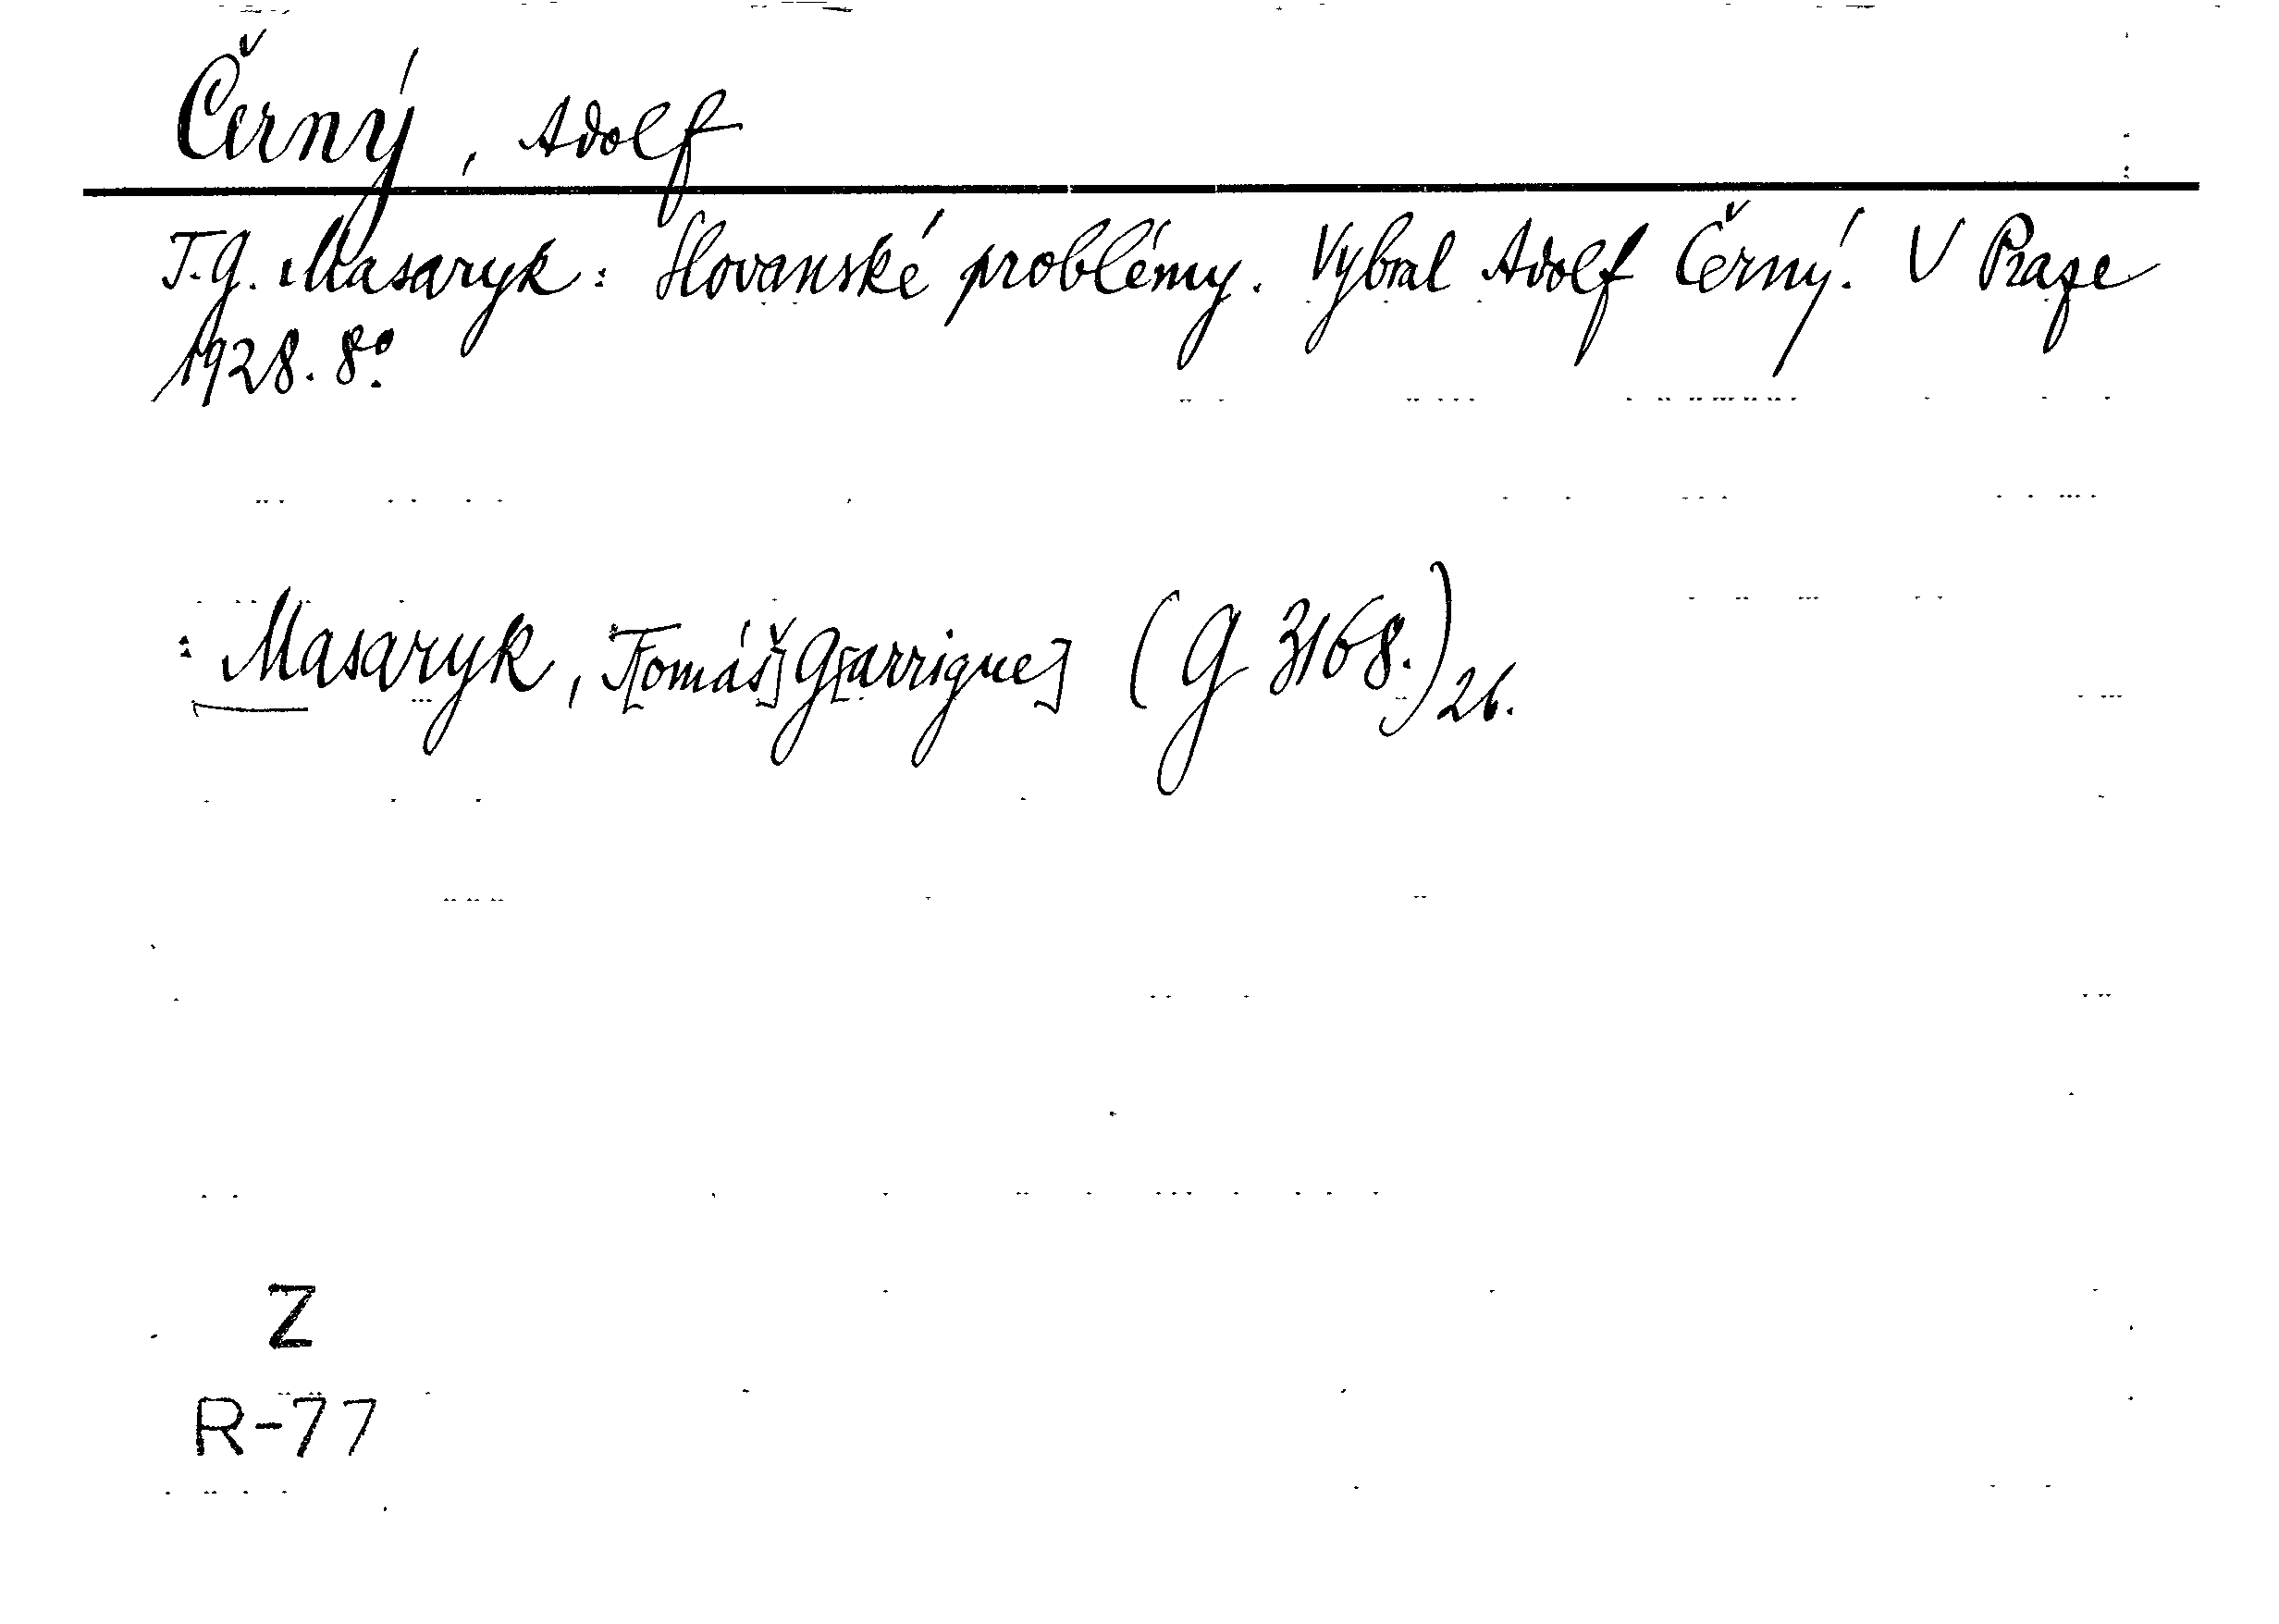 Černý, Adolf
T. G. Masaryk: Slovanské problémy. Vybral Adolf Černý. V Praze
1928. 8°.
: Masaryk, T[omáš] G[arrigue] (G 3168.) 26.
Z
R-77